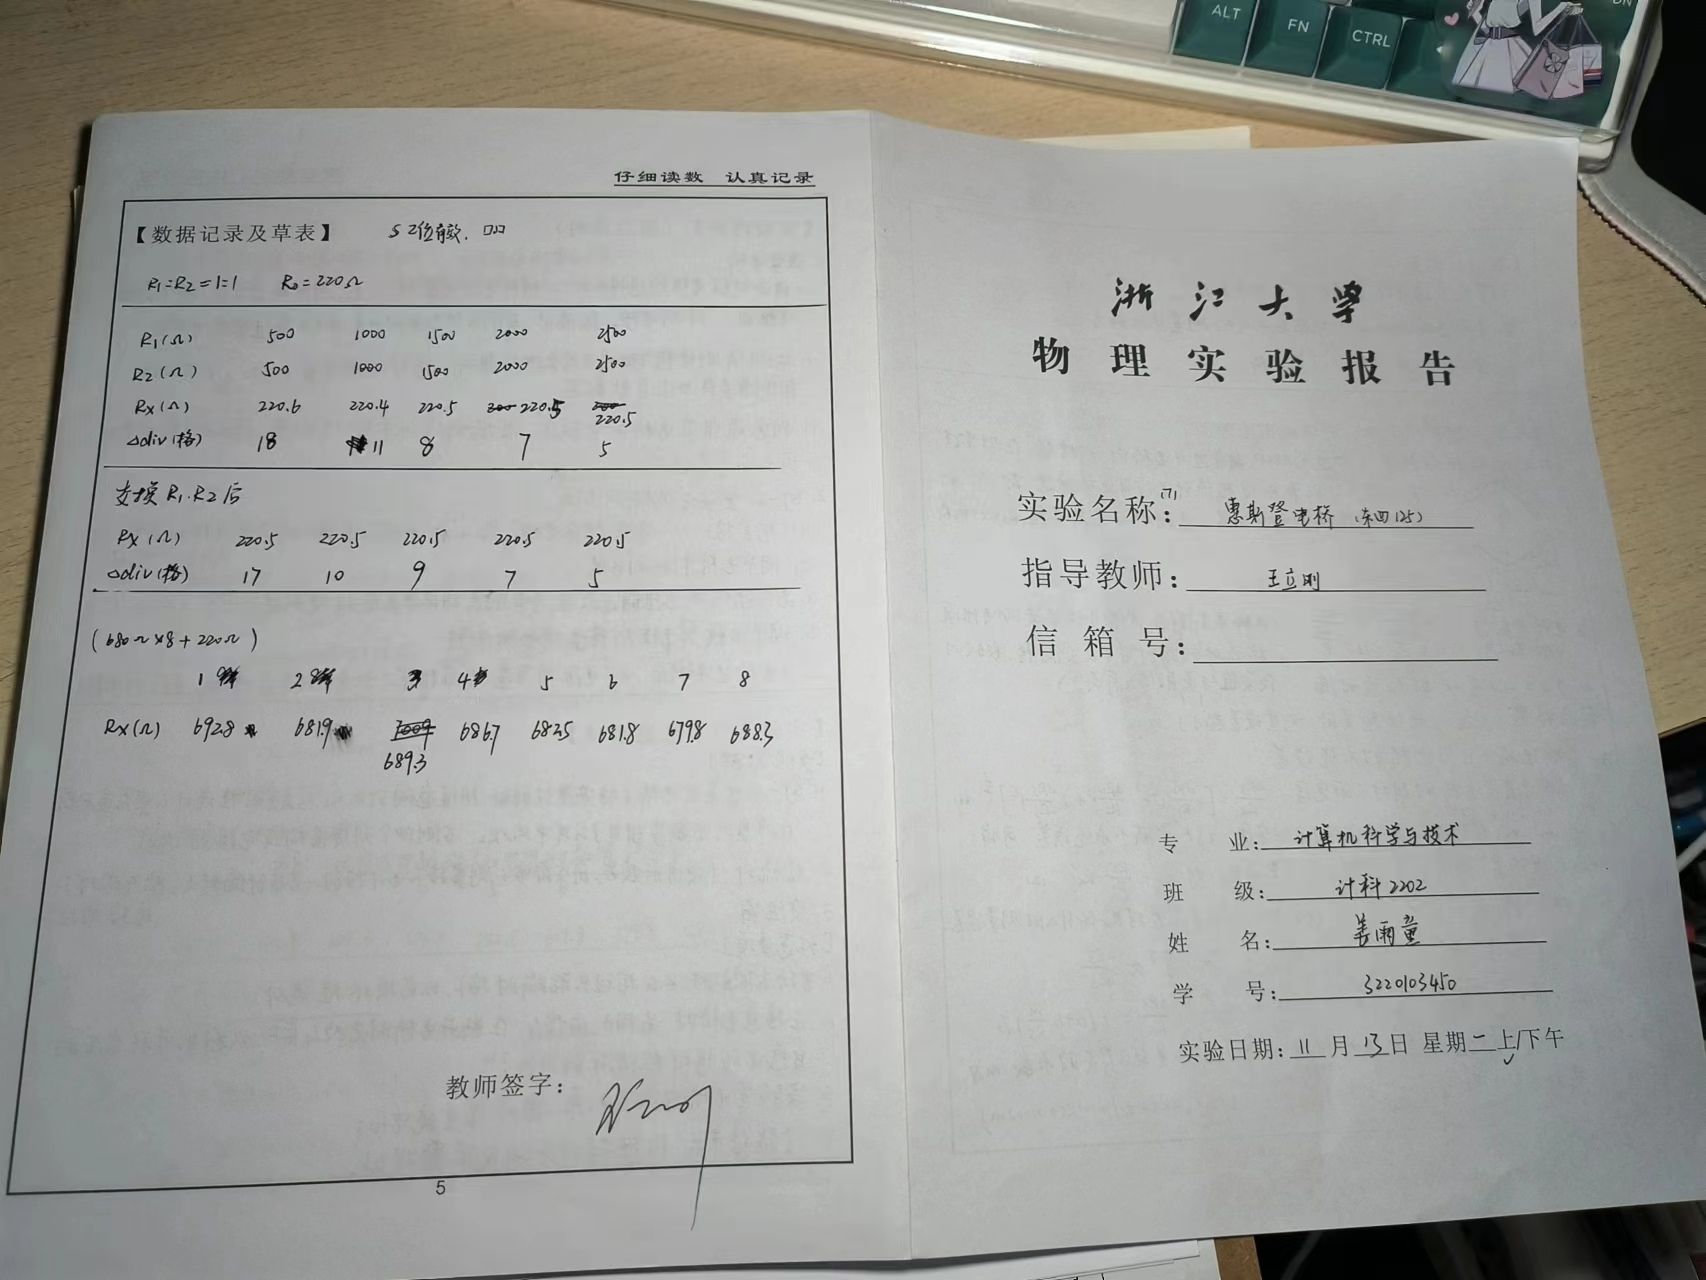 ALT
FN
CTRL
仔细读数 认真记录
【数据记录及草表】 S 2位有效.
R1=R2=1=1 R0=220Ω
R1(Ω) 500 1000 1500 2000 2500
R2(Ω) 500 1000 1500 2000 2500
Rx(Ω) 220.6 220.4 220.5 220.5 220.5
Δdiv(格) 18 11 8 7 5
交换R1.R2后
Rx(Ω) 220.5 220.5 220.5 220.5 220.5
Δdiv(格) 17 10 9 7 5
(680Ω×8+220Ω)
1 2 3 4 5 6 7 8
Rx(Ω) 692.8 681.9 689.3 686.7 682.5 681.8 679.8 688.3
教师签字:
5
浙江大学
物理实验报告
实验名称: 惠斯登电桥 (东四125)
指导教师: 王立刚
信箱号:
专 业: 计算机科学与技术
班 级: 计科2202
姓 名: 姜雨童
学 号: 3220103450
实验日期: 11 月 13 日 星期二上/下午